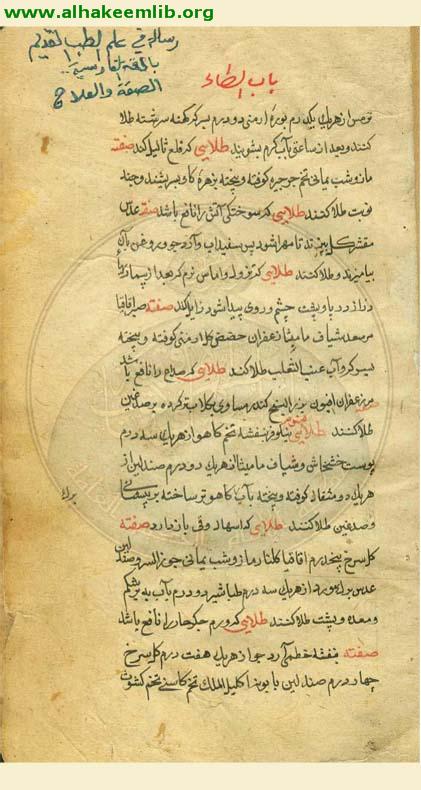 www.alhakeemlib.org
رسالة في علم الطب القديم
باللغة الفارسية
الصفة والعلاج
باب الطاء
از هریک یک درم بوره ارمنی دو درم بسرکه کهنه سرشته طلا
کنند و بعد از ساعتی بآب گرم بشویند طلایی که قلع ثالیل کند صفته
مازو شب یمانی تخم جرجیر کوفته و بیخته بزهره کاو بسرشند و چند
نوبت طلا کنند طلایی که سوختکی آتش را نافع باشد صفته عدس
مقشر کل بپزند تا مهرا شود پس سفیداب و آرد جو و روغن بآن
بیامیزند و طلا کنند طلایی که تربل و اماس نرم که بعد از بیماریها
در پا و پشت چشم و روی پیدا شود زایل کند صفته صبر اقاقیا
مر سعد شیاف مامیثا زعفران حضض کل ارمنی کوفته و بیخته
بسرکه و آب عنب الثعلب طلا کند طلایی که صداع را نافع باشد
مر زعفران افیون بزر البنج کندر مساوی بکلاب تر کرده بر صدغین
طلا کنند طلایی منوم نیلوفر بنفشه تخم کاهو از هریک سه درم
پوست خشخاش و شیاف مامیثا از هریک دو درم صندلین از
هریک دو مثقال کوفته و بیخته بآب کاهو تر ساخته بر پیشانی
و صدغین طلا کنند طلایی که اسهال و قی باز دارد صفته
کل سرخ پنجدرم اقاقیا کلنار مازو شب یمانی جوز السرو صندلین
عدس مورد از هریک سه درم طباشیر دو درم بآب به بر شکم
و معده و پشت طلا کنند طلایی که ورم جکر حار را نافع باشد
صفته بنفشه خطمی آرد جو از هریک هفت درم کل سرخ
چهار درم صندلین بابونه اکلیل الملک تخم کاسنی تخم کشوث